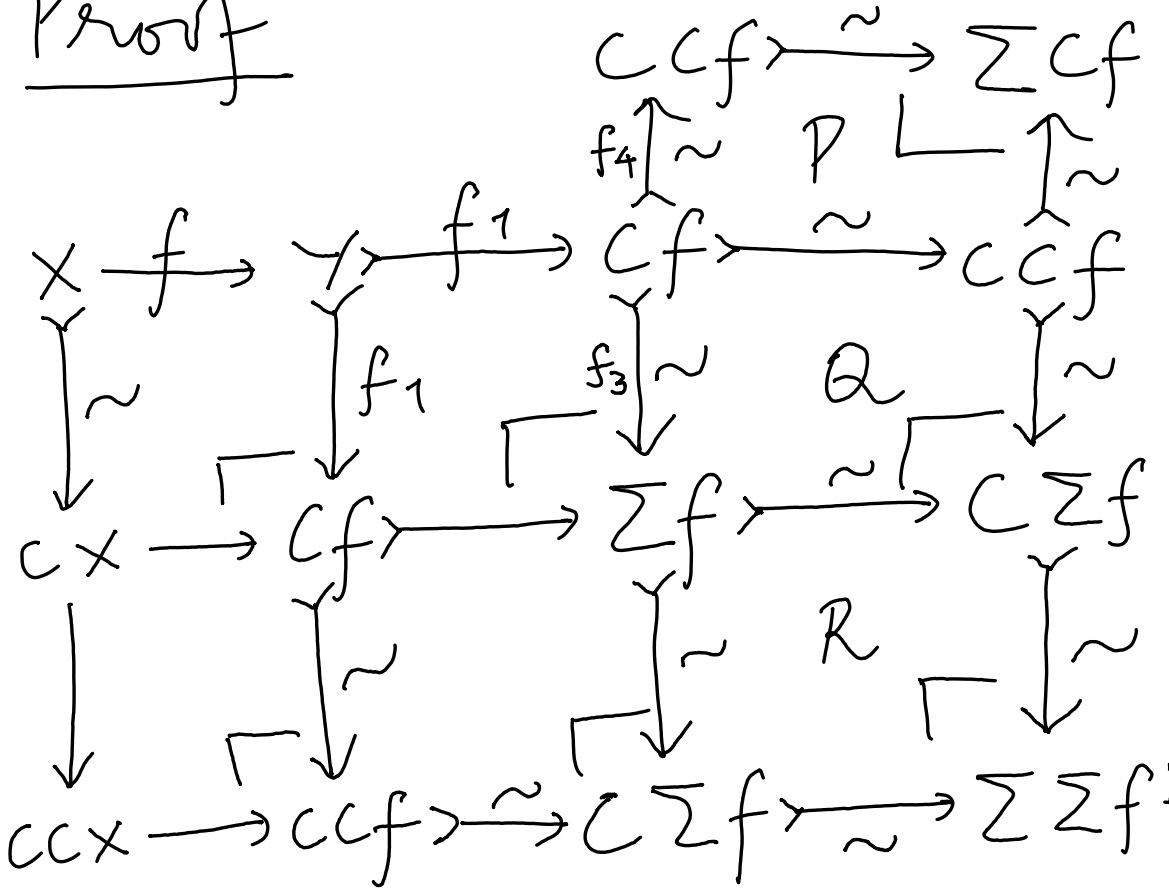 Proof
CCf ~ ΣCf
f4 ~ P ~
X f Y f1 Cf ~ CCf
~ f1 f3 ~ Q ~
CX Cf Σf ~ CΣf
~ ~ R ~
CCX CCf ~ CΣf ~ ΣΣf